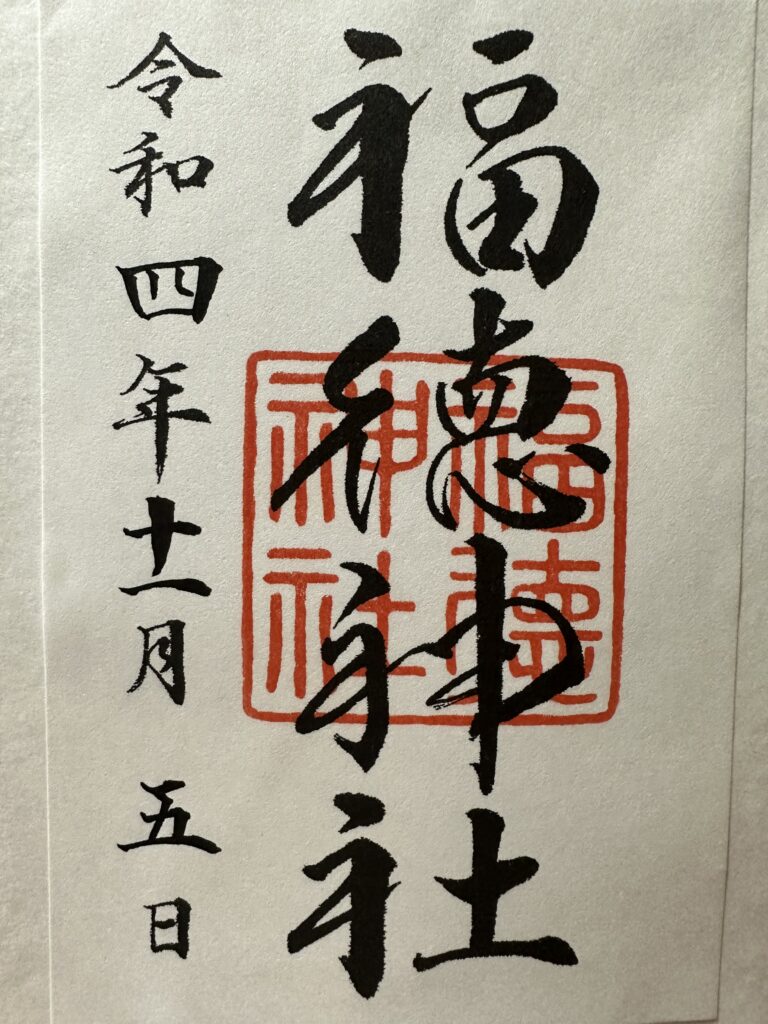 福徳神社
令和四年十一月五日
福徳
神社